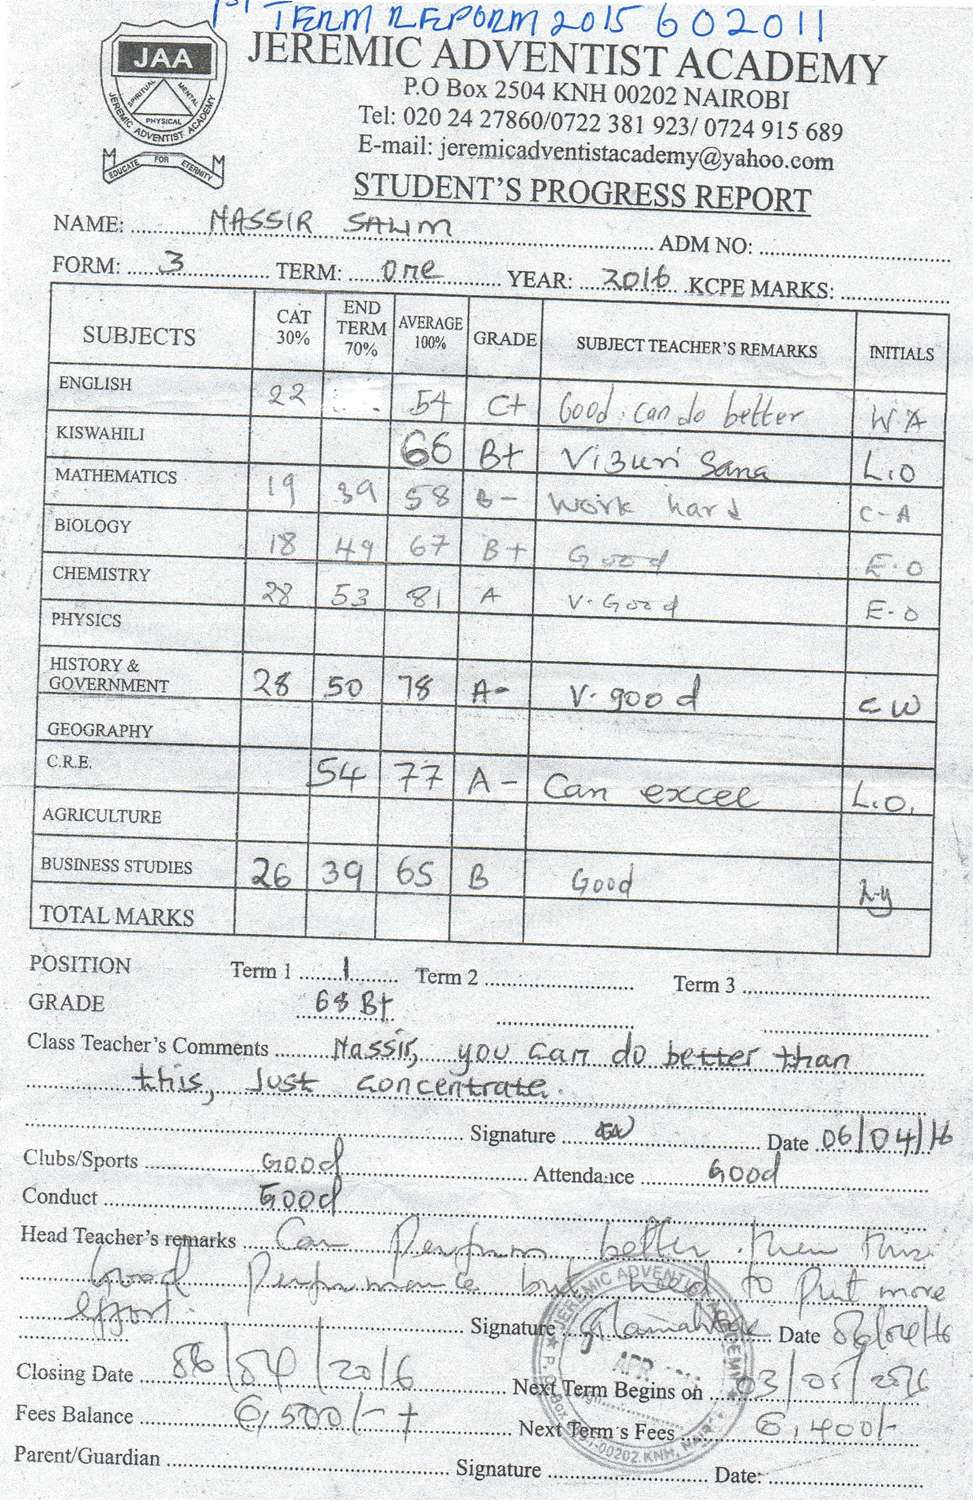 1ST TERM REFORM 2015 602011
JAA
SPIRITUAL MENTAL PHYSICAL
JEREMIC ADVENTIST ACADEMY
EDUCATE FOR ETERNITY
JEREMIC ADVENTIST ACADEMY
P.O Box 2504 KNH 00202 NAIROBI
Tel: 020 24 27860/0722 381 923/ 0724 915 689
E-mail: jeremicadventistacademy@yahoo.com
STUDENT'S PROGRESS REPORT
NAME: NASSIR SALIM ADM NO:
FORM: 3 TERM: One YEAR: 2016 KCPE MARKS:
SUBJECTS CAT 30% END TERM 70% AVERAGE 100% GRADE SUBJECT TEACHER'S REMARKS INITIALS
ENGLISH 22 54 C+ Good. can do better W A
KISWAHILI 66 B+ Vizuri Sana L.O
MATHEMATICS 19 39 58 B- Work hard C-A
BIOLOGY 18 49 67 B+ Good E.O
CHEMISTRY 28 53 81 A V. Good E-O
PHYSICS
HISTORY & GOVERNMENT 28 50 78 A- V. good CW
GEOGRAPHY
C.R.E. 54 77 A- Can excel L.O.
AGRICULTURE
BUSINESS STUDIES 26 39 65 B Good
TOTAL MARKS
POSITION Term 1 1 Term 2 Term 3
GRADE 68 B+
Class Teacher's Comments Nassir, you can do better than
this, Just concentrate.
Signature Date 06/04/16
Clubs/Sports GOOD Attendance GOOD
Conduct GOOD
Head Teacher's remarks Can Perform better then this.
Good Performance but need to Put more
effort.
Signature Date 06/04/16
Closing Date 06/04/2016 Next Term Begins on 03/05/2016
Fees Balance 6,500/- + Next Term's Fees 6,400/-
Parent/Guardian Signature Date:
JEREMIC ADVENTIST ACADEMY
APR
P.O. Box 00202 KNH, NAIR